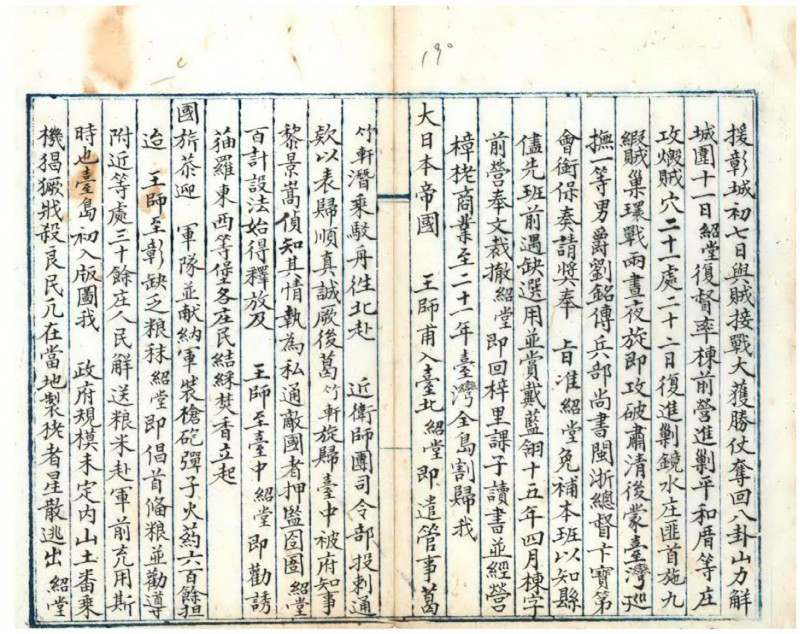 援彰城初七日與賊接戰大獲勝仗奪回八卦山力解
城圍十一日紹堂復督率棟前營進剿平和厝等庄
攻燬賊穴二十一處二十二日復進剿鏡水庄匪首施九
緞賊巢環戰兩晝夜旋即攻破肅清後蒙臺灣巡
撫一等男爵劉銘傳兵部尚書閩浙總督卞寶第
會銜保奏請獎奉 旨准 紹堂免補本班以知縣
儘先班前遇缺選用並賞戴藍翎十五年四月棟字
前營奉文裁撤紹堂即回梓里課子讀書並經營
樟栳商業至二十一年臺灣全島割歸我
大日本帝國 王師甫入臺北紹堂即遣管事葛
竹軒潛乘駁舟往北赴 近衛師團司令部投刺通
欵以表歸順真誠厥後葛竹軒旋歸臺中被府知事
黎景嵩偵知其情執為私通敵國者押監囹圄紹堂
百計設法始得釋放及 王師至臺中紹堂即勸誘
猫羅東西等堡各庄民結綵焚香立起
國旂恭迎 軍隊並献納軍裝槍砲彈子火药六百餘担
迨 王師至彰缺乏粮秣紹堂即倡首俻粮並勸導
附近等處三十餘庄人民觧送粮米赴軍前充用斯
時也臺島初入版圖我 政府規模未定內山土番乘
機猖獗戕殺良民凡在當地製栳者星散逃出紹堂